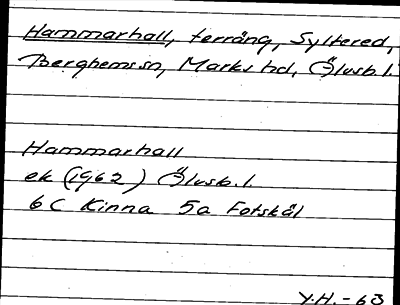 Hammarhall, terräng, Syltered,
Berghems sn, Marks hd, Älvsb.l.
Hammarhall
ek (1962) Älvsb.l.
6C Kinna 5a Fotskäl
Y.H. -63